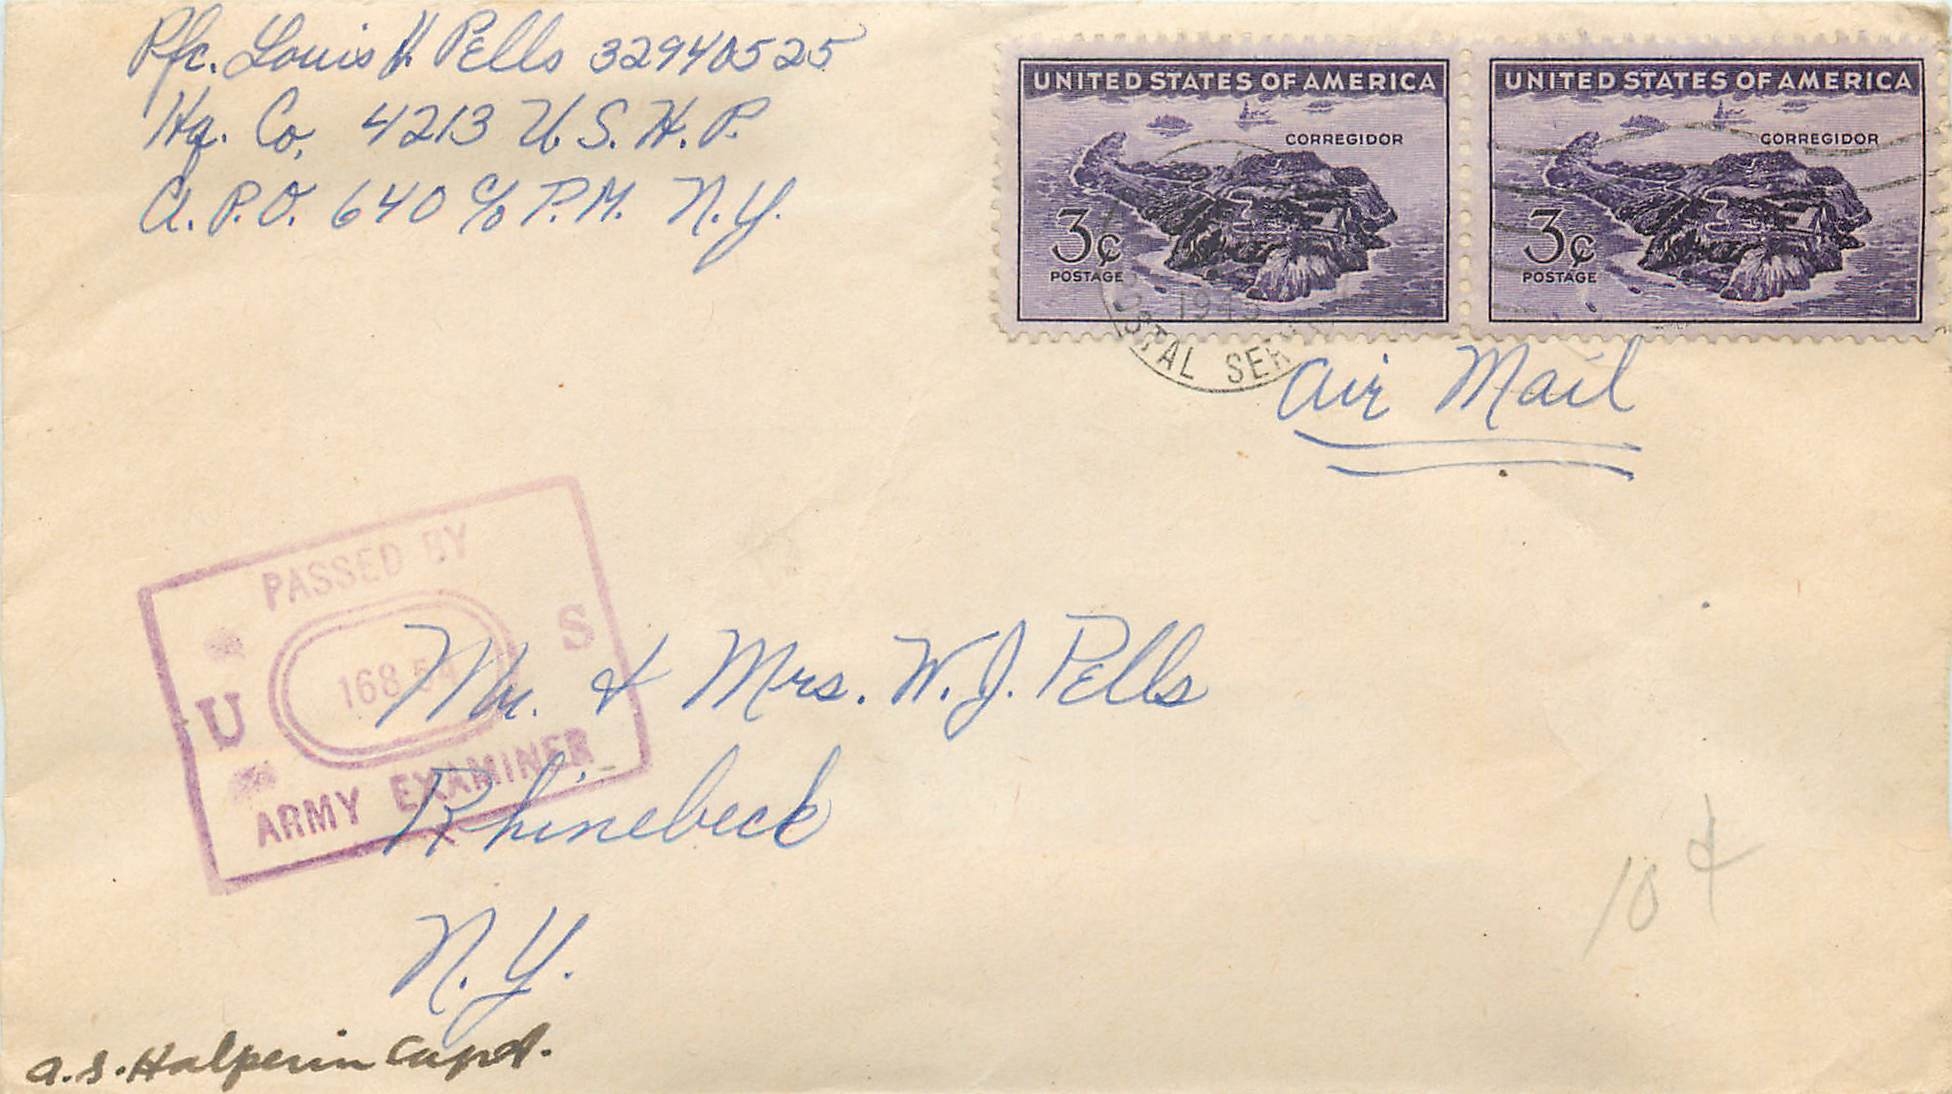 Pfc. Louis H. Pells 32940525
Hq. Co. 4213 U.S.H.P.
A.P.O. 640 c/o P.M. N.Y.
UNITED STATES OF AMERICA
CORREGIDOR
3¢
POSTAGE
UNITED STATES OF AMERICA
CORREGIDOR
3¢
POSTAGE
1945
POSTAL SERVICE
Air Mail
PASSED BY
U S
ARMY EXAMINER
Mr. & Mrs. W. J. Pells
Rhinebeck
N.Y.
10¢
A. S. Halperin Capt.